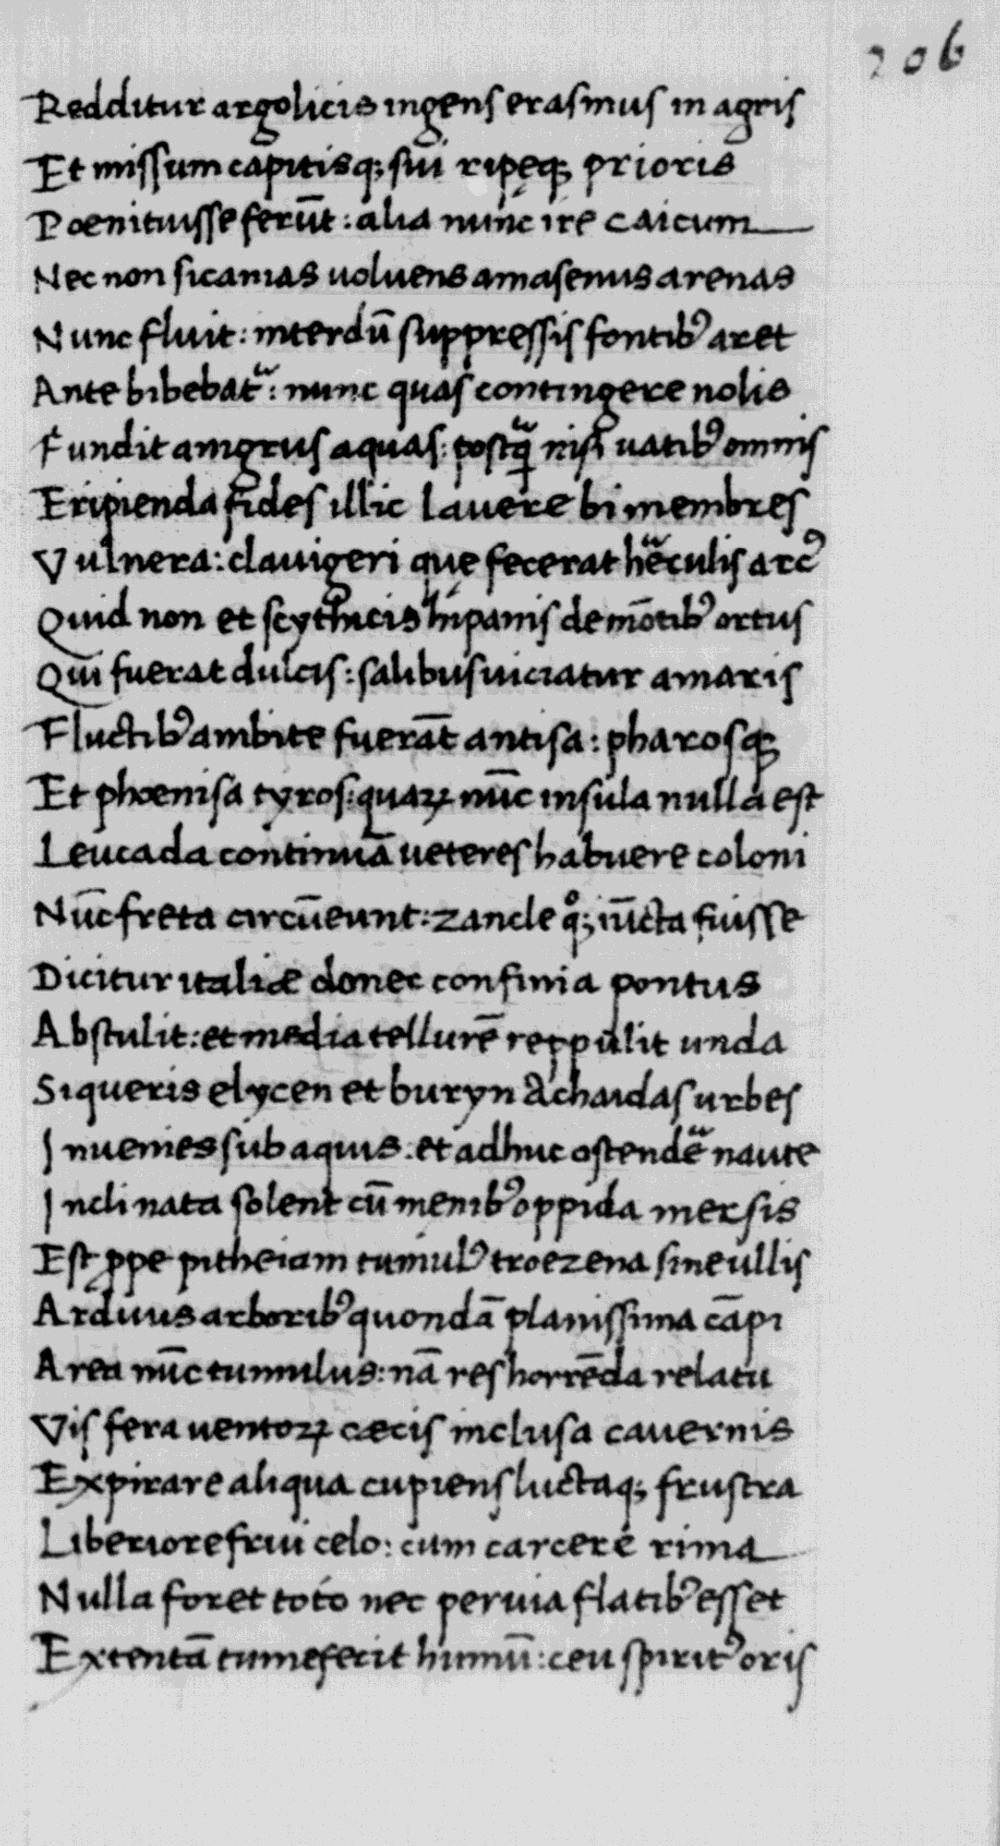 206
Redditur argolicis ingens erasmus in agris
Et missum capitisq; sui ripęq; prioris
Poenituisse ferūt: alia nunc ire caicum
Nec non sicanias uoluens amasenus arenas
Nunc fluit: interdū suppressis fontibꝰ aret
Ante bibebat᷑: nunc quas contingere nolis
Fundit amgrus aquas: postq̃ nisi uatibꝰ omnis
Eripienda fides illic lauere bimembres
Vulnera: clauigeri quę fecerat hẽculis arcꝰ
Quid non et scythicis hipanis de mōtibꝰ ortus
Qui fuerat dulcis: salibus uiciatur amaris
Fluctibꝰ ambite fuerāt antisa: pharosq;
Et phoenisa tyros: quaꝝ nūc insula nulla est
Leucada continuā ueteres habuere coloni
Nūc freta circūeunt: zancle qͦ; iūcta fuisse
Dicitur italiæ donec confinia pontus
Abstulit: et media tellurē reppulit unda
Si queris elycen et buryn achaidas urbes
Inuenies sub aquis: et adhuc ostendẽ naute
Inclinata solent cū menibꝰ oppida mersis
Est ꝓpe pitheiam tumulꝰ troezena sine ullis
Arduus arboribꝰ quondā planissima cāpi
Area nūc tumulus: nā res horrēda relatu
Vis fera uentoꝝ cæcis inclusa cauernis
Expirare aliqua cupiens luctaq; frustra
Liberiore frui celo: cum carcere rima
Nulla foret toto nec peruia flatibꝰ esset
Extentā tumefecit humū: ceu spiritꝰ oris